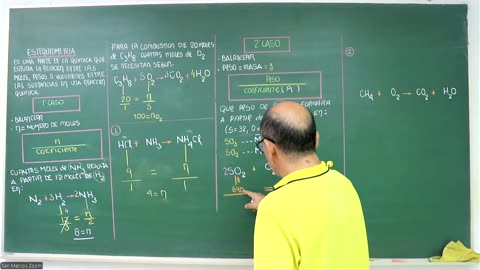 ESTEQUIOMETRIA
ES UNA PARTE DE LA QUIMICA QUE
ESTUDIA LA RELACION ENTRE LAS
MOLES, PESOS O VOLUMENES ENTRE
LAS SUSTANCIAS EN UNA REACCION
QUIMICA.
1° CASO
- BALANCEAR
- n = NUMERO DE MOLES
n
COEFICIENTE
CUANTAS MOLES DE NH₃ RESULTA
A PARTIR DE 12 MOLES DE H₂
EN:
N₂ + 3H₂ → 2NH₃
8 = n
PARA LA COMBUSTION DE 20 MOLES
DE C₃H₈ CUANTAS MOLES DE O₂
SE NECESITAN SEGUN:
C₃H₈ + 5O₂ → 3CO₂ + 4H₂O
20 = n
1 5
100 = n
①
HCl + NH₃ → NH₄Cl
4 = n
1 1
4 = n
2° CASO
- BALANCEAR
- PESO = MASA = g
PESO
COEFICIENTE
QUE PESO DE
A PARTIR
(S=32, O
SO₃
SO₂
2SO₂ +
②
CH₄ + O₂ → CO₂ + H₂O
San Marcos Zoom